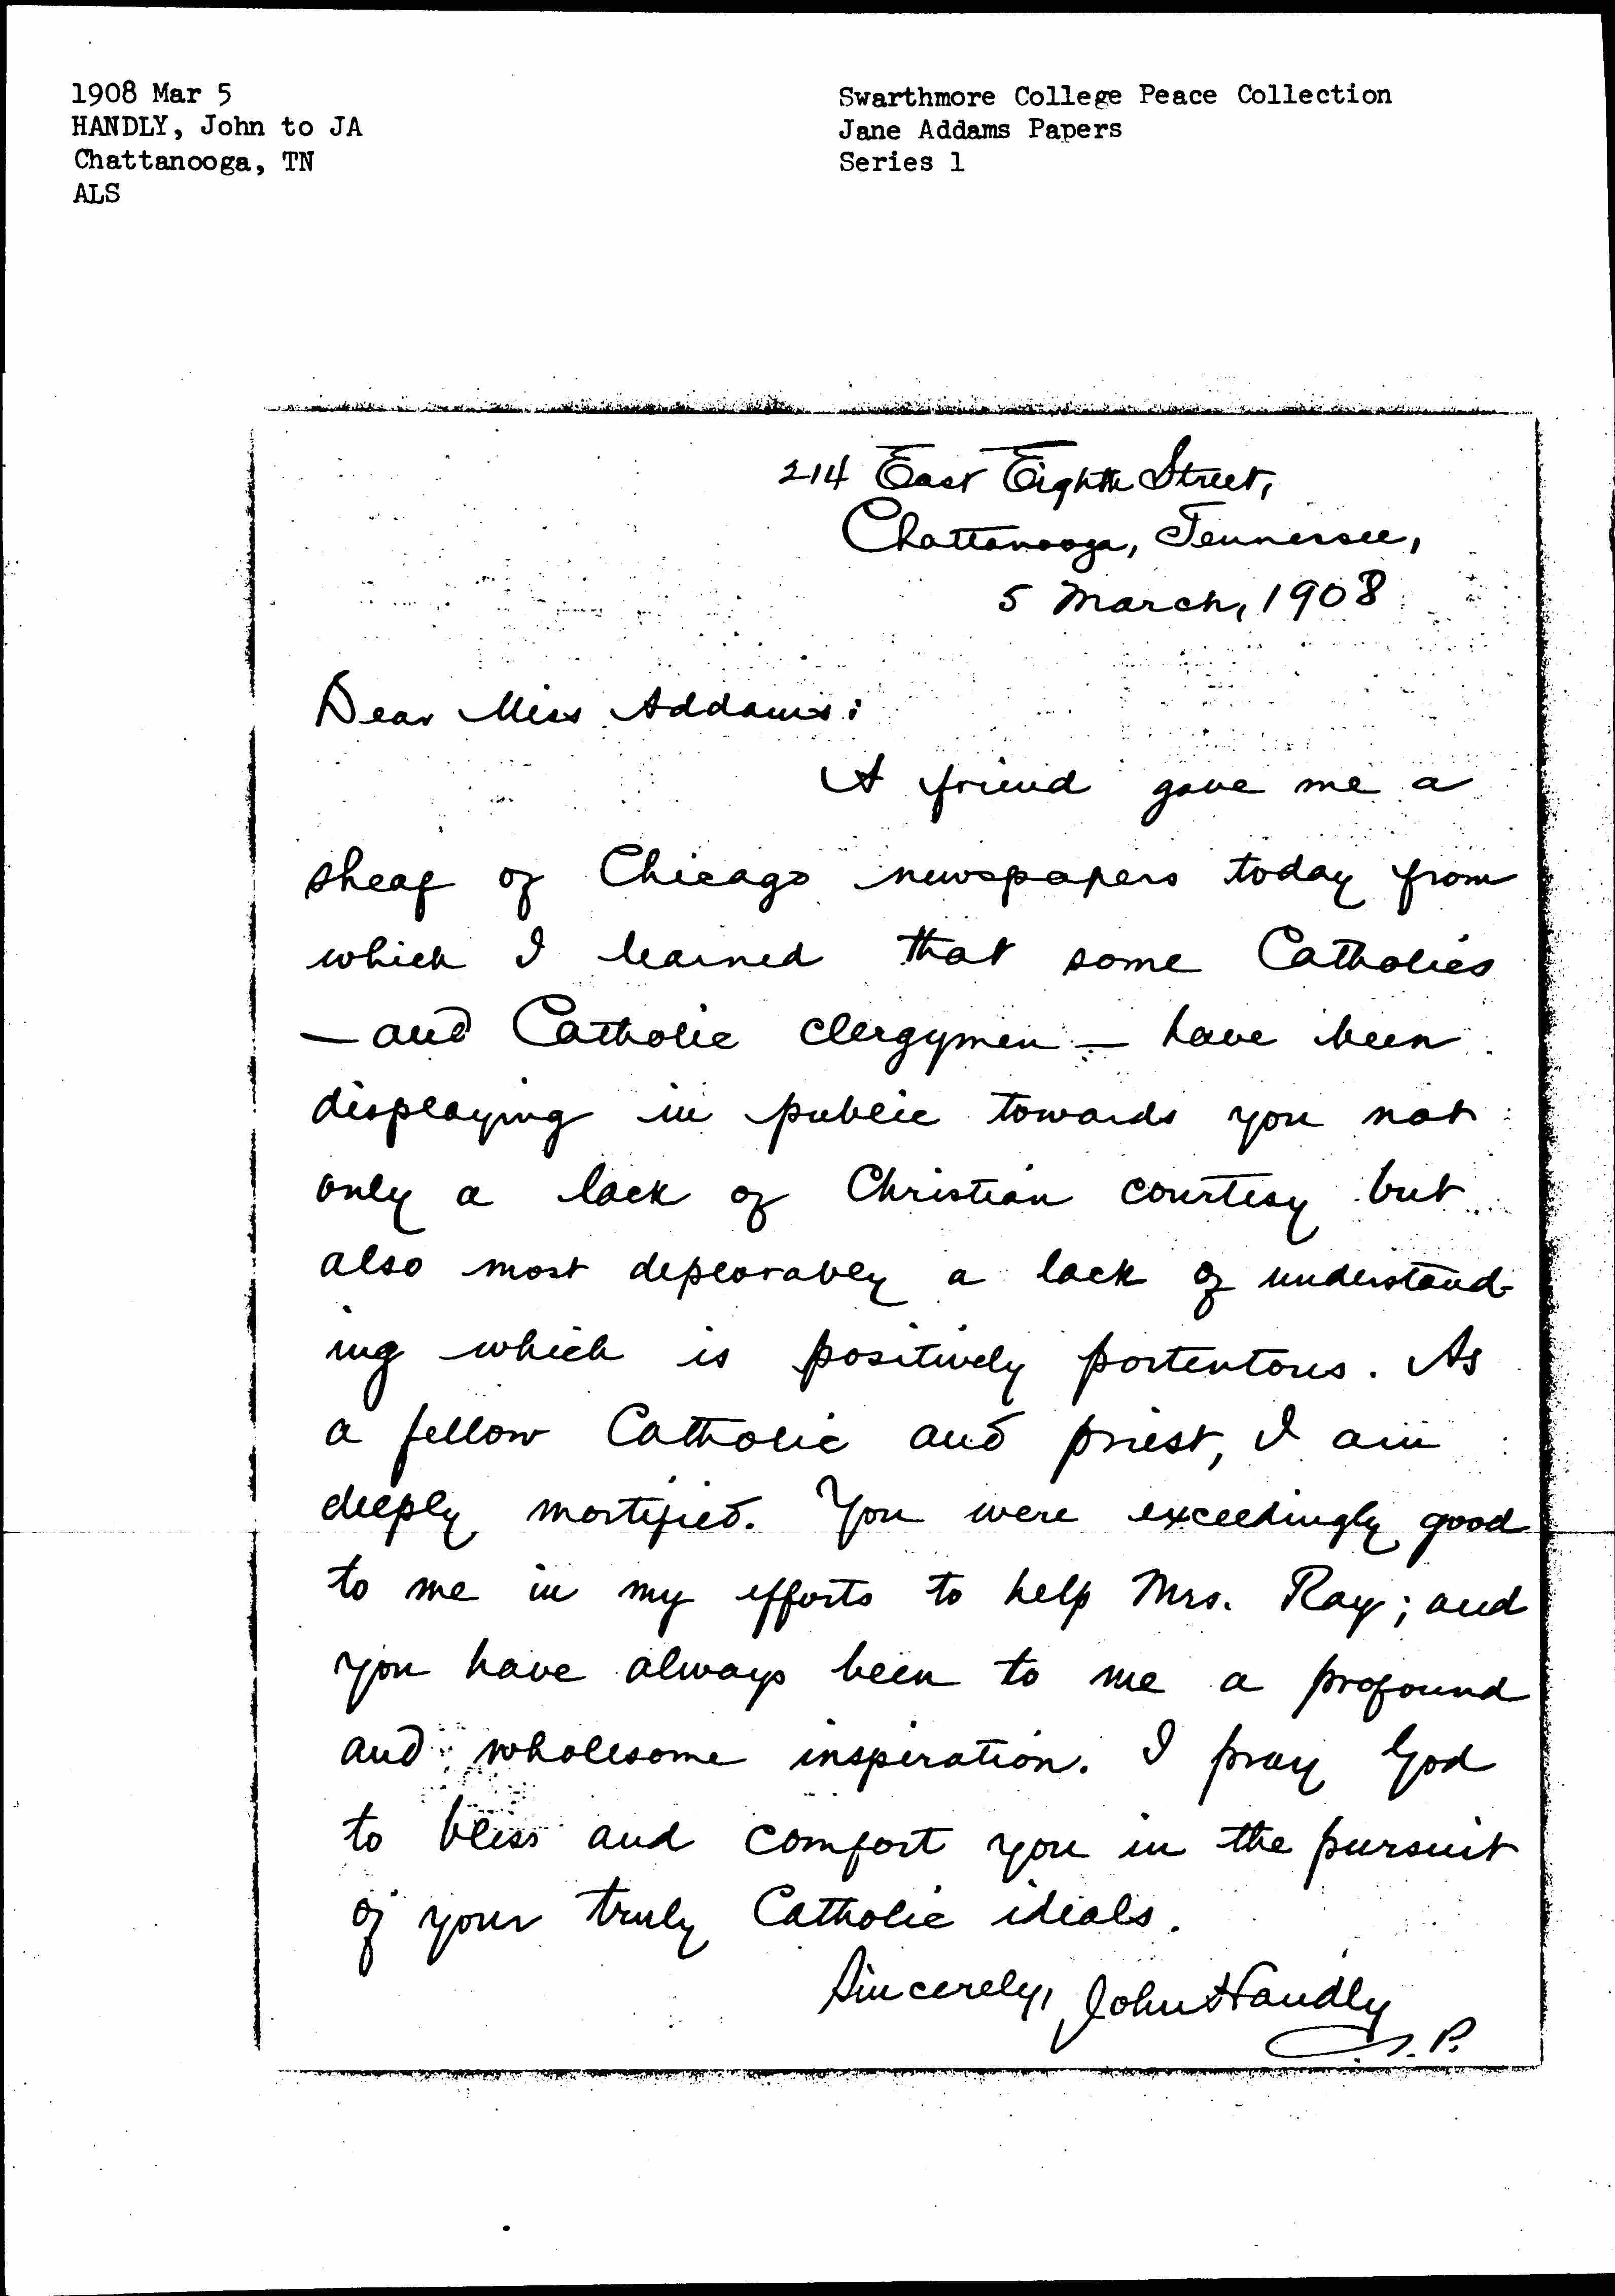 1908 Mar 5
HANDLY, John to JA
Chattanooga, TN
ALS
Swarthmore College Peace Collection
Jane Addams Papers
Series 1
214 East Eighth Street,
Chattanooga, Tennessee,
5 March, 1908
Dear Miss Addams:
A friend gave me a
sheaf of Chicago newspapers today from
which I learned that some Catholics
— and Catholic clergymen — have been
displaying in public towards you not
only a lack of Christian courtesy but
also most deplorably a lack of understand-
ing which is positively portentous. As
a fellow Catholic and priest, I am
deeply mortified. You were exceedingly good
to me in my efforts to help Mrs. Ray; and
you have always been to me a profound
and wholesome inspiration. I pray God
to bless and comfort you in the pursuit
of your truly Catholic ideals.
Sincerely, John Handly
P.